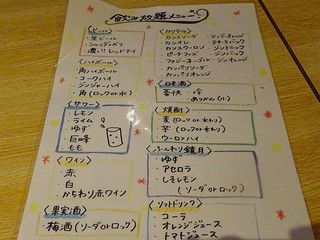 飲み放題メニュー
〈ビール〉
・生ビール
・シャンディガフ
・濃い!!レッドアイ
〈ハイボール〉
・角ハイボール
・コークハイ
・ジンジャーハイ
・角(ロックor水)
〈サワー〉
・レモン
・ライム
・ゆず
・巨峰
・もも
〈ワイン〉
・赤
・白
・かちわり赤ワイン
〈果実酒〉
梅酒(ソーダorロック)
〈カクテル〉
・カシスソーダ
・カシオレ
・カシスウーロン
・ピーチフィズ
・ファジーネーブル
・カンパリソーダ
・カンパリオレンジ
・テキーラバック
・ジントニック
・ジンバック
・ジンオレンジ
〈日本酒〉
・冷
あつかん(小)
〈焼酎〉
・麦(ロックor水わり)
・芋(ロックor水わり)
・ウーロンハイ
〈ふんわり鏡月〉
・ゆず
・アセロラ
・しそレモン
(ソーダorロック)
〈ソフトドリンク〉
・コーラ
・オレンジジュース
・トマトジュース